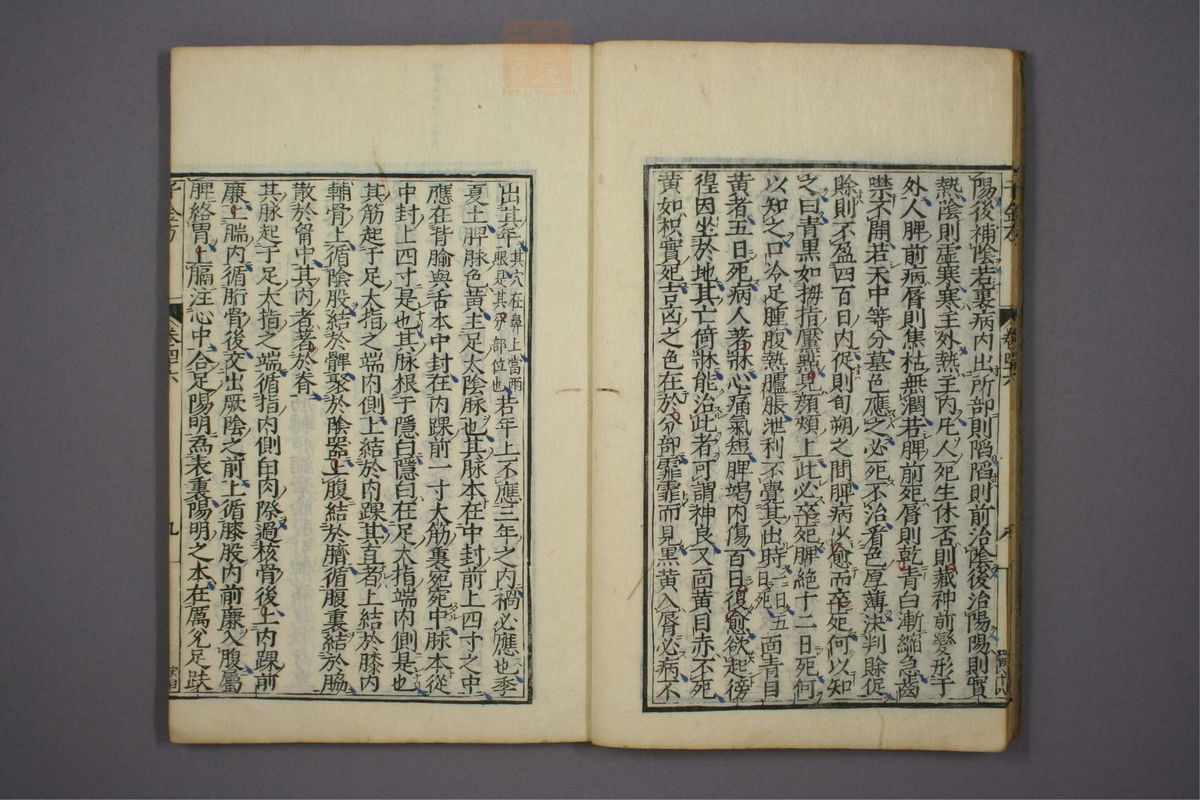 陽後補陰若裏病內出所部則陷陷則前治陰後治陽陽則實
熱陰則虛寒寒主外熱主內凡人死生休否則藏神前變形于
外人脾前病脣則焦枯無潤若脾前死脣則乾青白漸縮急齒
噤不開若天中等分墓色應之必死不治看色厚薄決判賒促
賒則不盈四百日內促則旬朔之間脾病少愈而卒死何以知
之曰青黑如拇指黶點見顏頰上此必卒死脾絕十二日死何
以知之口冷足腫腹熱臚脹泄利不覺其出時一曰五日死面青目
黃者五日死病人著牀心痛氣短脾竭內傷百日復愈欲起徬
徨因坐於地其亡倚牀能治此者可謂神良又面黃目赤不死
黃如枳實死吉凶之色在於分部霏霏而見黑黃入脣必病不
千金方 卷四十六
出其年其穴在鼻上當兩眼是其分部位也若年上不應三年之內禍必應也季
夏土脾脈色黃主足太陰脉也其脉本在中封前上四寸之中
應在背腧與舌本中封在內踝前一寸大筋裏宛宛中脉本從
中封上四寸是也其脉根于隱白隱白在足大指端內側是也
其筋起于足大指之端內側上結於內踝其直者上結於膝內
輔骨上循陰股結於髀聚於陰器上腹結於臍循腹裏結於脇
散於胷中其內者著於脊
其脉起于足大指之端循指內側白肉際過核骨後上內踝前
廉上腨內循胻骨後交出厥陰之前上循膝股內前廉入腹屬
脾絡胃上膈注心中合足陽明爲表裏陽明之本在厲兌足趺
千金方 卷四十六 九